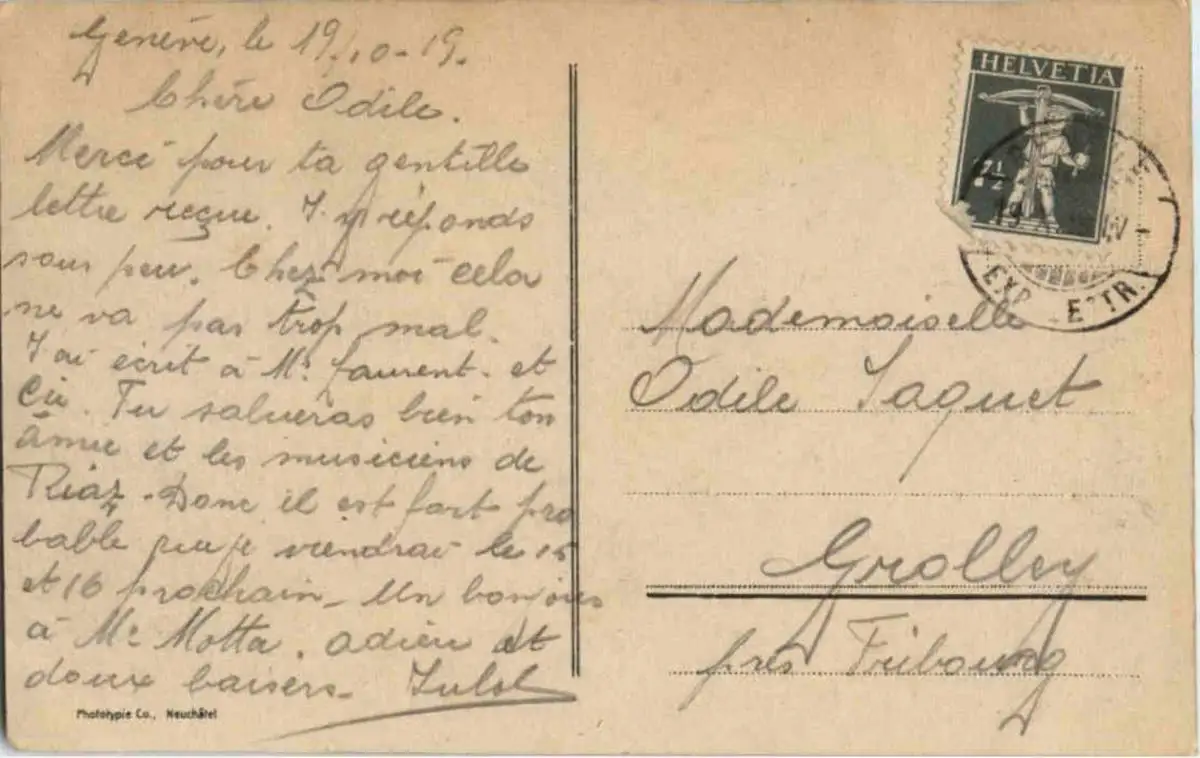 Genève, le 19.10-19.
Chère Odile.
Merci pour ta gentille
lettre reçue. J'y réponds
sous peu. Chez moi cela
ne va pas trop mal.
J'ai écrit à Mr. Laurent. et
Cie. Tu salueras bien ton
âmie et les musiciens de
Riaz. Donc il est fort pro
bable que je viendrai le 15
et 16 prochain. Un bonjour
à Mr Motta. adieu et
doux baisers.
Phototypie Co., Neuchâtel
HELVETIA
7½
EXP. LETTR.
Mademoiselle
Odile Jaquet
Grolley
près Fribourg